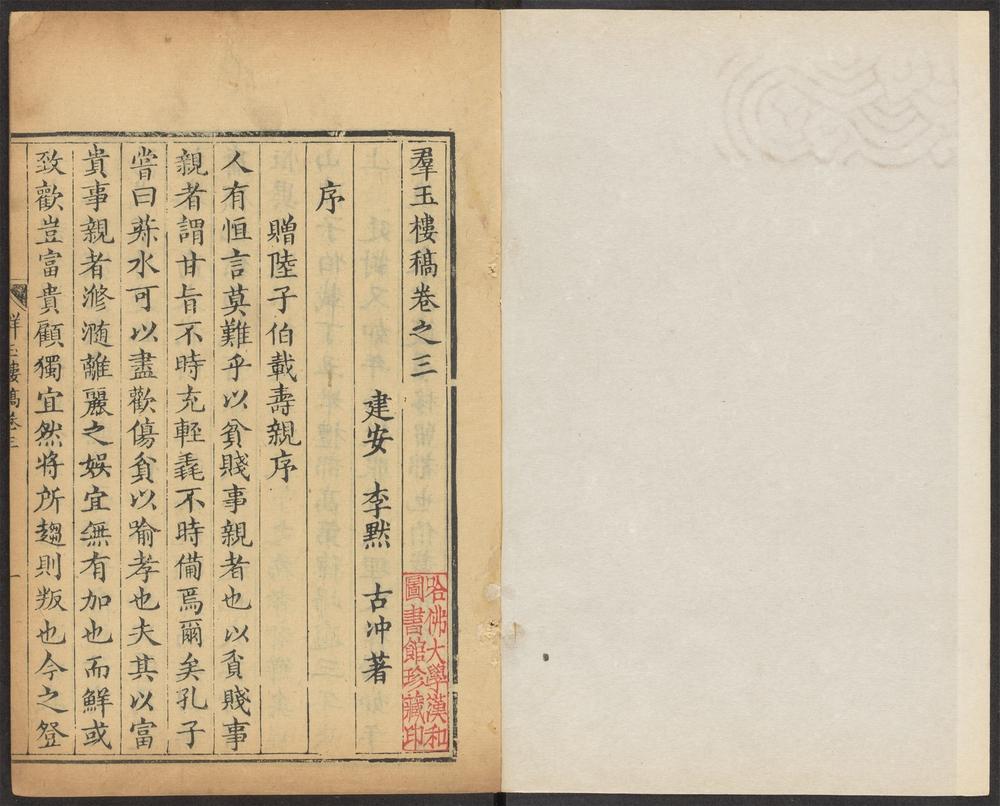 羣玉樓稿卷之三
建安 李黙 古冲著
序
贈陸子伯載壽親序
人有恒言莫難乎以貧賤事親者也以貧賤事
親者謂甘旨不時充輕毳不時備焉爾矣孔子
甞曰菽水可以盡歡傷貧以喻孝也夫其以富
貴事親者滫瀡離麗之娛宜無有加也而鮮或
致歡豈富貴顧獨宜然將所趨則叛也今之登
羣玉樓稿卷三
一
哈佛大學漢和
圖書館珍藏印